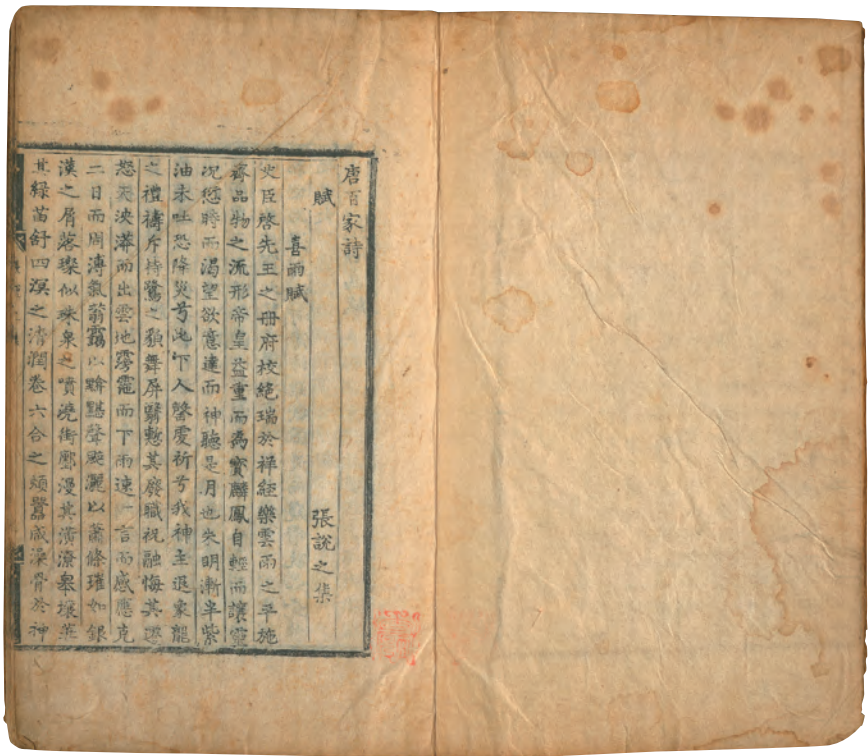 唐百家詩
賦 張說之集
喜雨賦
史臣啓先王之冊府校絶瑞於禪經樂雲雨之平施
齊品物之流形帝皇益重而為寳麟鳳自輕而讓靈
況愆時而渴望欲意達而神聽是月也朱明漸半紫
油未吐恐降災兮此下人罄虔祈兮我神主退象龍
之禮禱斥持鷺之頟舞屏翳慙其廢職祝融悔其
怒天泱漭而出雲地霶霮而下雨速一言而感應克
二日而周溥氣蓊靄以黭黮聲颼灑以蕭條璀如銀
漢之屑落璨似珠泉之噴澆街鄽漫其潢潦皋壤
其緑苗舒四溟之清潤卷六合之煩囂咸澡骨於神